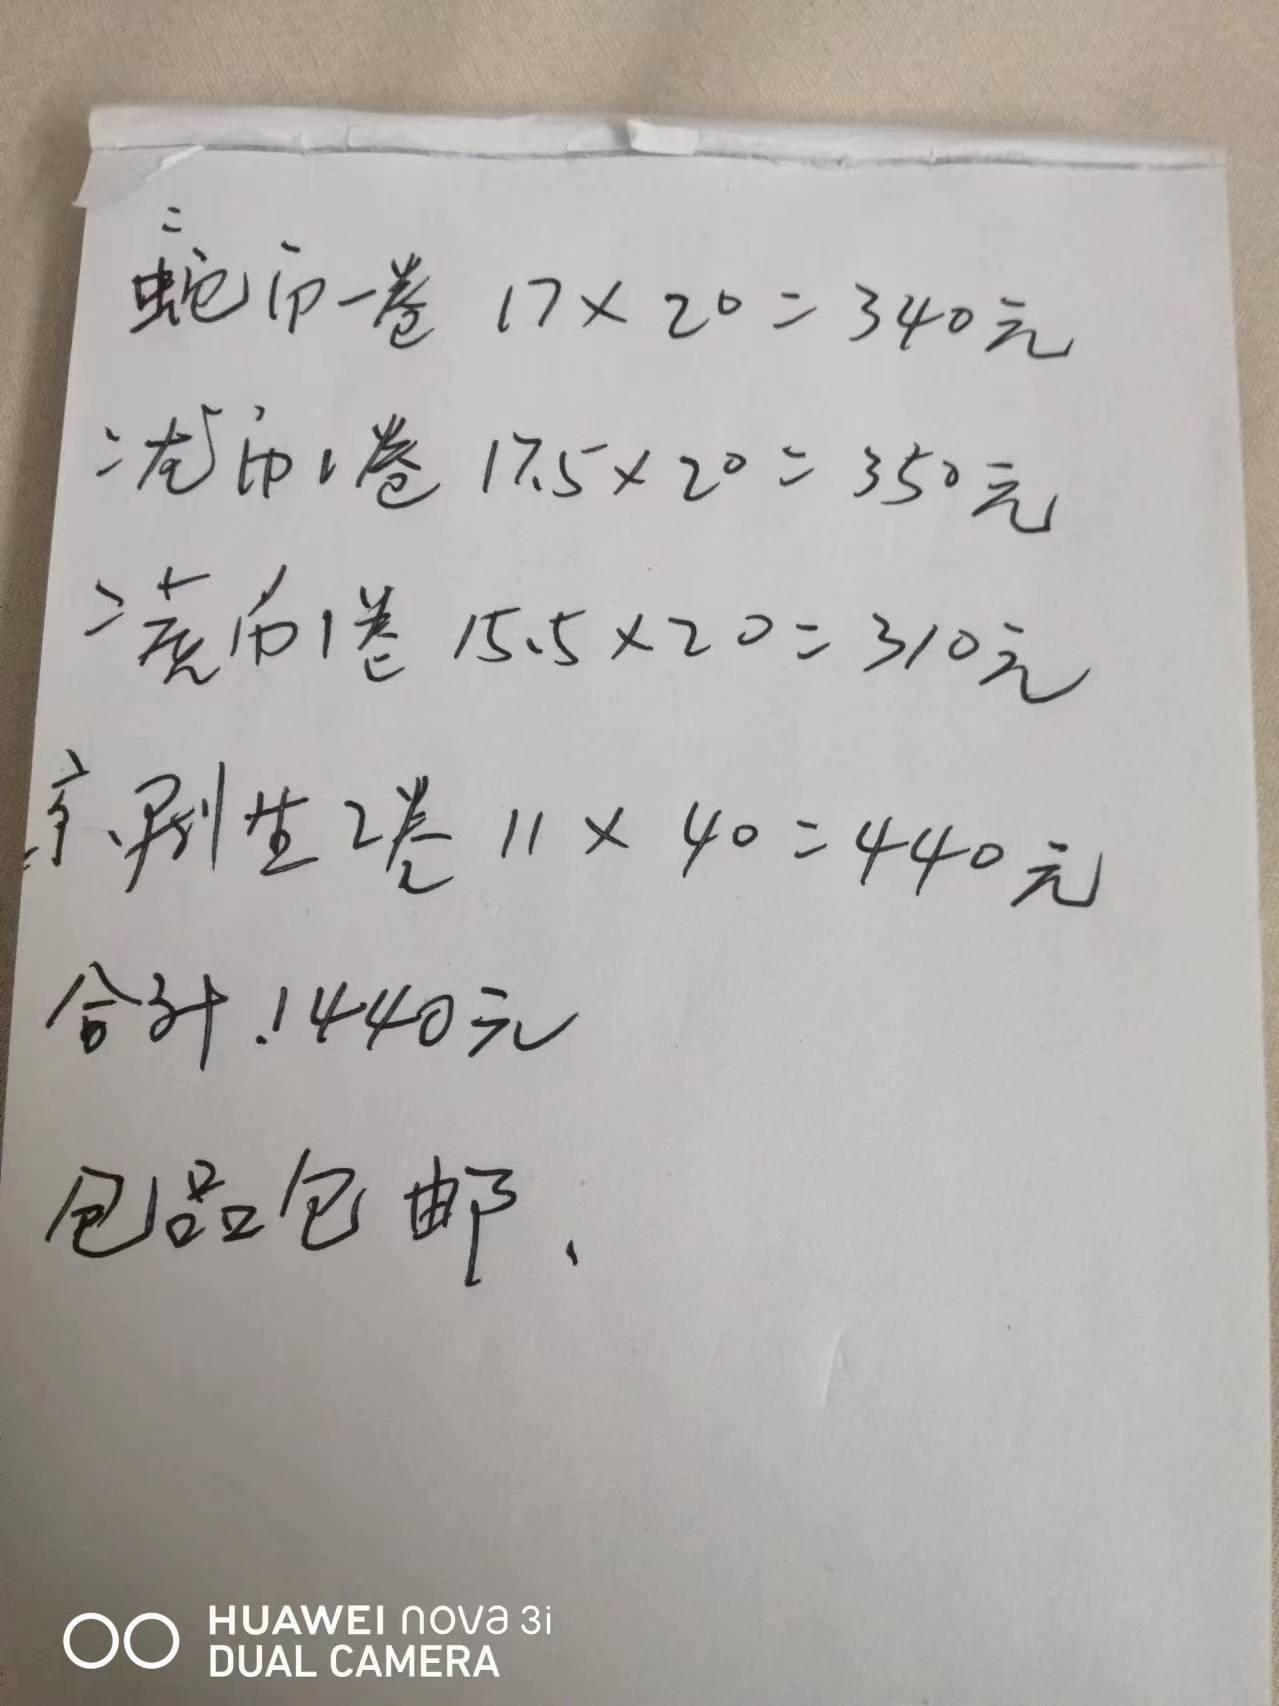 二蛇币一卷 17×20=340元
二龙币1卷 17.5×20=350元
二虎币1卷 15.5×20=310元
2卷 11×40=440元
合计.1440元
包品包邮、
HUAWEI nova 3i
DUAL CAMERA